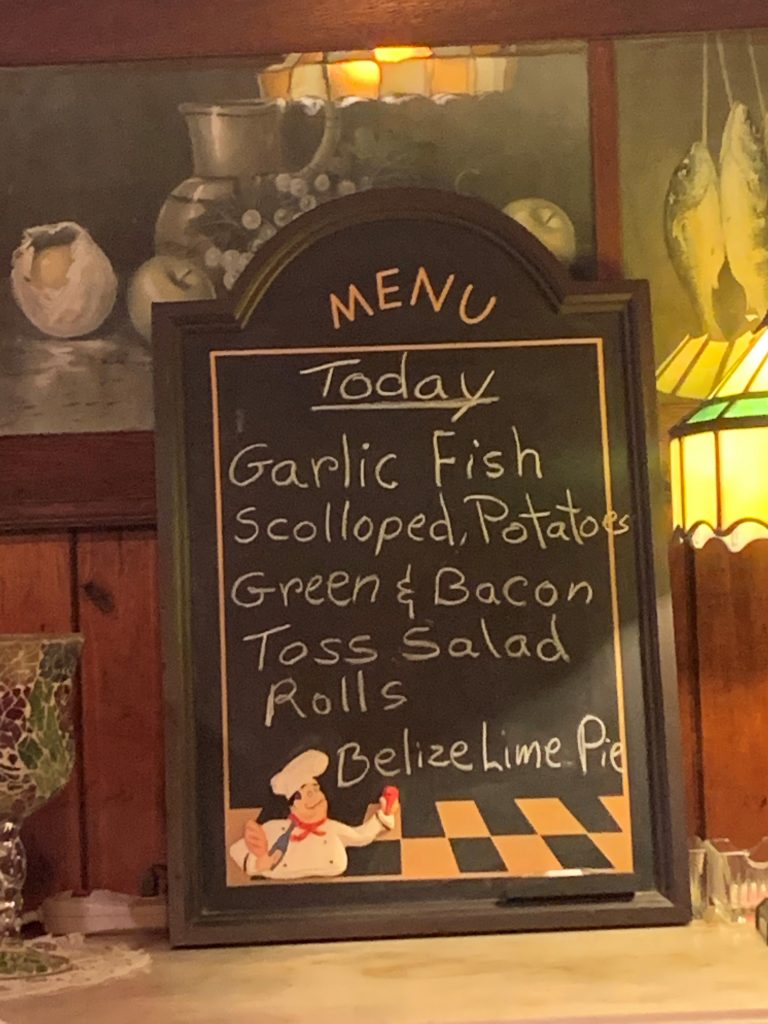 MENU
Today
Garlic Fish
Scolloped, Potatoes
Green & Bacon
Toss Salad
Rolls
Belize Lime Pie